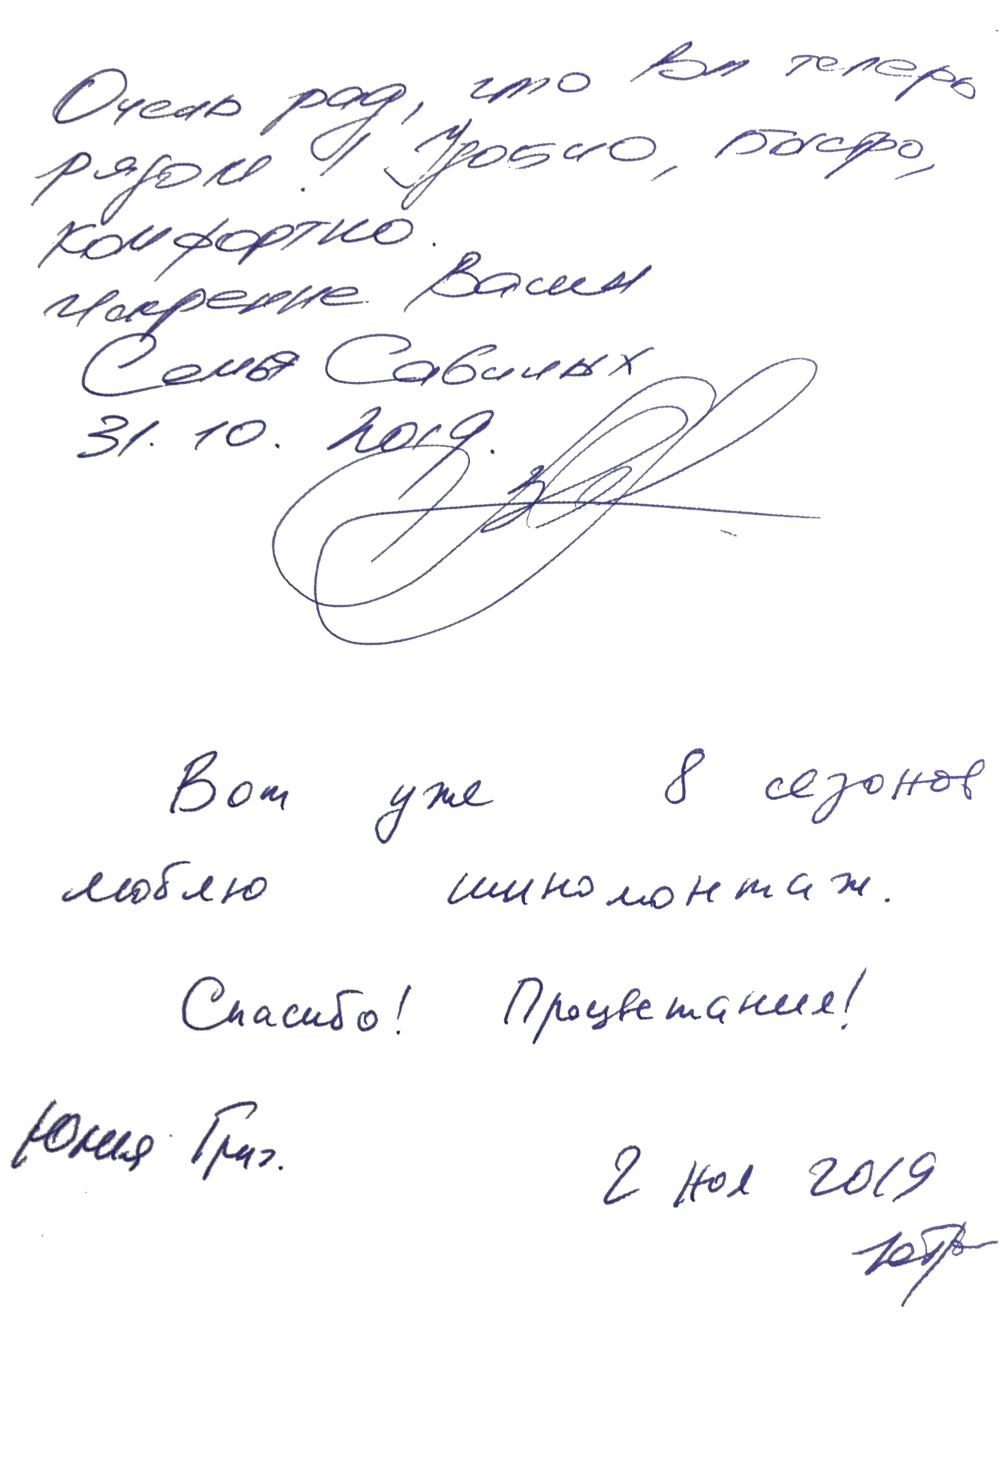 Очень рад, что Вы теперь
рядом! Удобно, быстро,
комфортно.
Искренне Ваши
Семья Савиных
31.10.2019.
Вот уже 8 сезонов
люблю шиномонтаж.
Спасибо! Процветания!
Юлия Григ.
2 ноя 2019